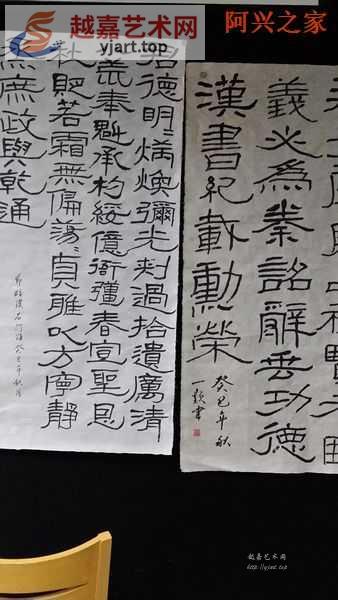 越嘉艺术网
yjart.top
阿兴之家
義以為秦銘辭垂功德
漢書紀載勳榮
癸巳年秋
德明〻炳煥彌光刺過拾遺厲清
荒奉魁承杓綏億衙彊春宣聖恩
貶若霜無偏蕩〻貞雅以方寧靜
烝庶政與乾通
越嘉艺术网
http://yjart.top